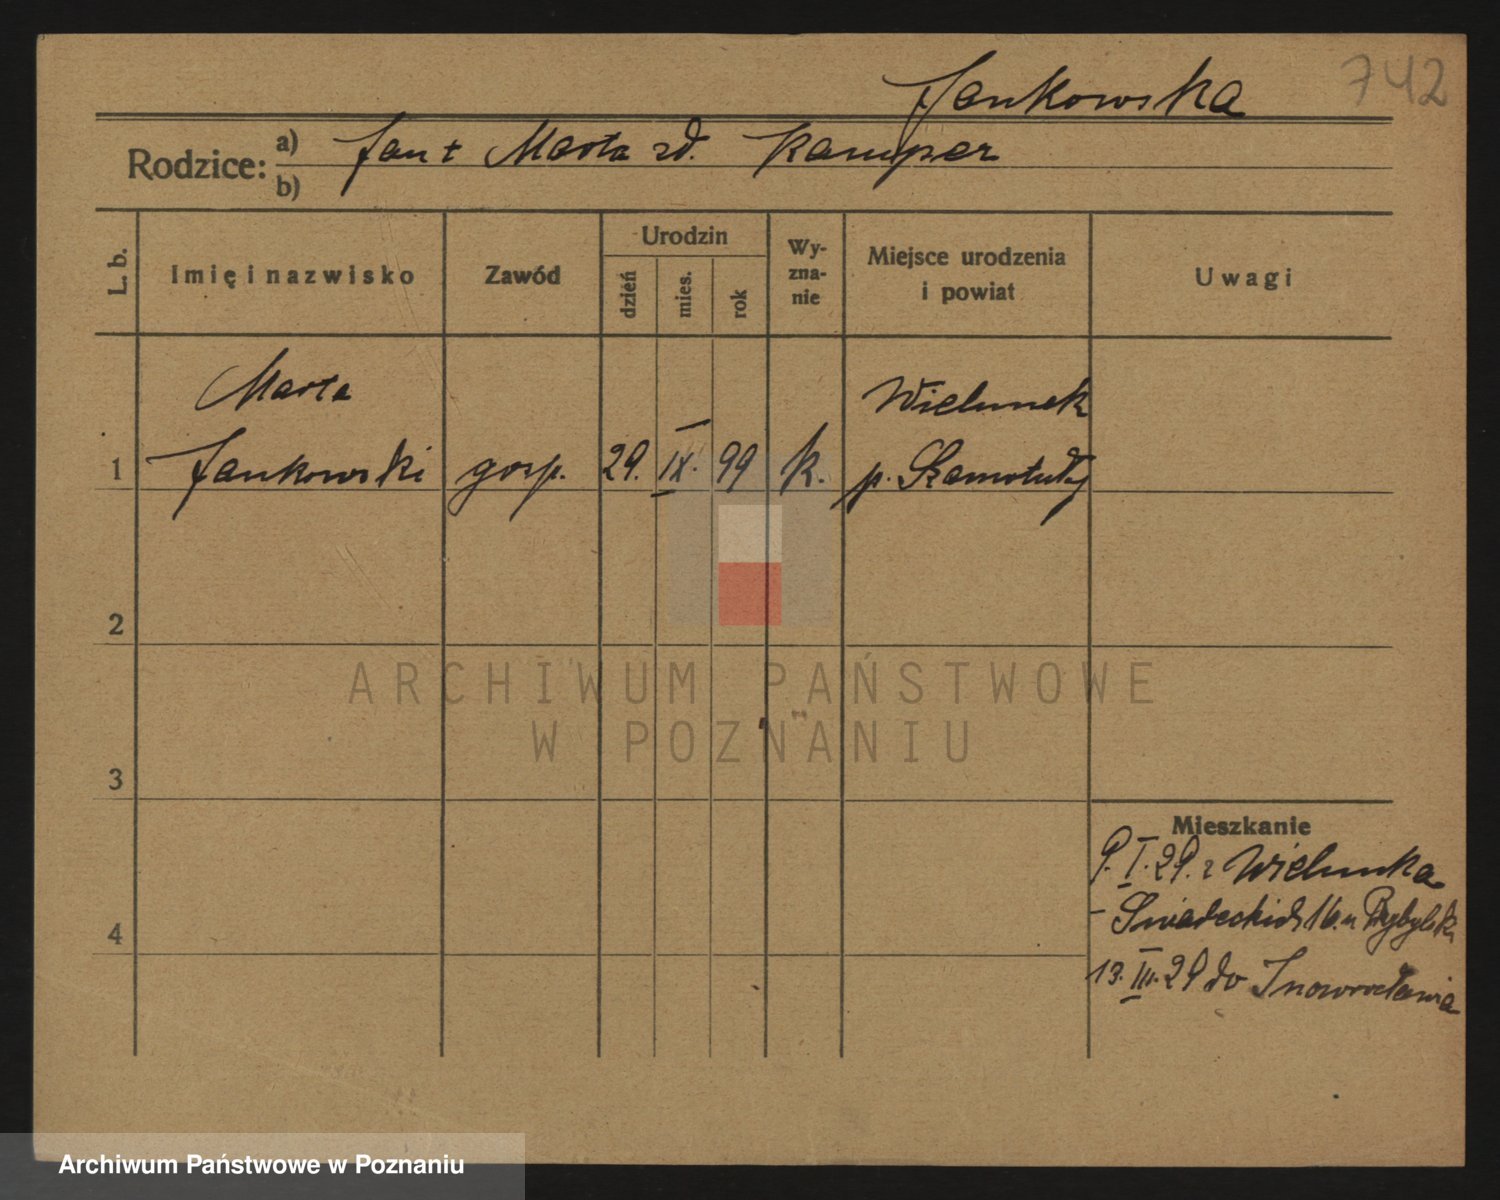 Jankowska
742
Rodzice: a) Jan t Marta zd. Kamper
b)
L. b. Imię i nazwisko Zawód Urodzin dzień mies. rok Wyznanie Miejsce urodzenia i powiat Uwagi
Marta Wielunek
1 Jankowski gosp. 29. IX. 99 k. p. Szamotuły
2
ARCHIWUM PAŃSTWOWE
W POZNANIU
3
Mieszkanie
9. I. 29. z Wielunka
4 - Śniadeckich 16. u Przybylski
13. III. 29 do Inowrocławia
Archiwum Państwowe w Poznaniu